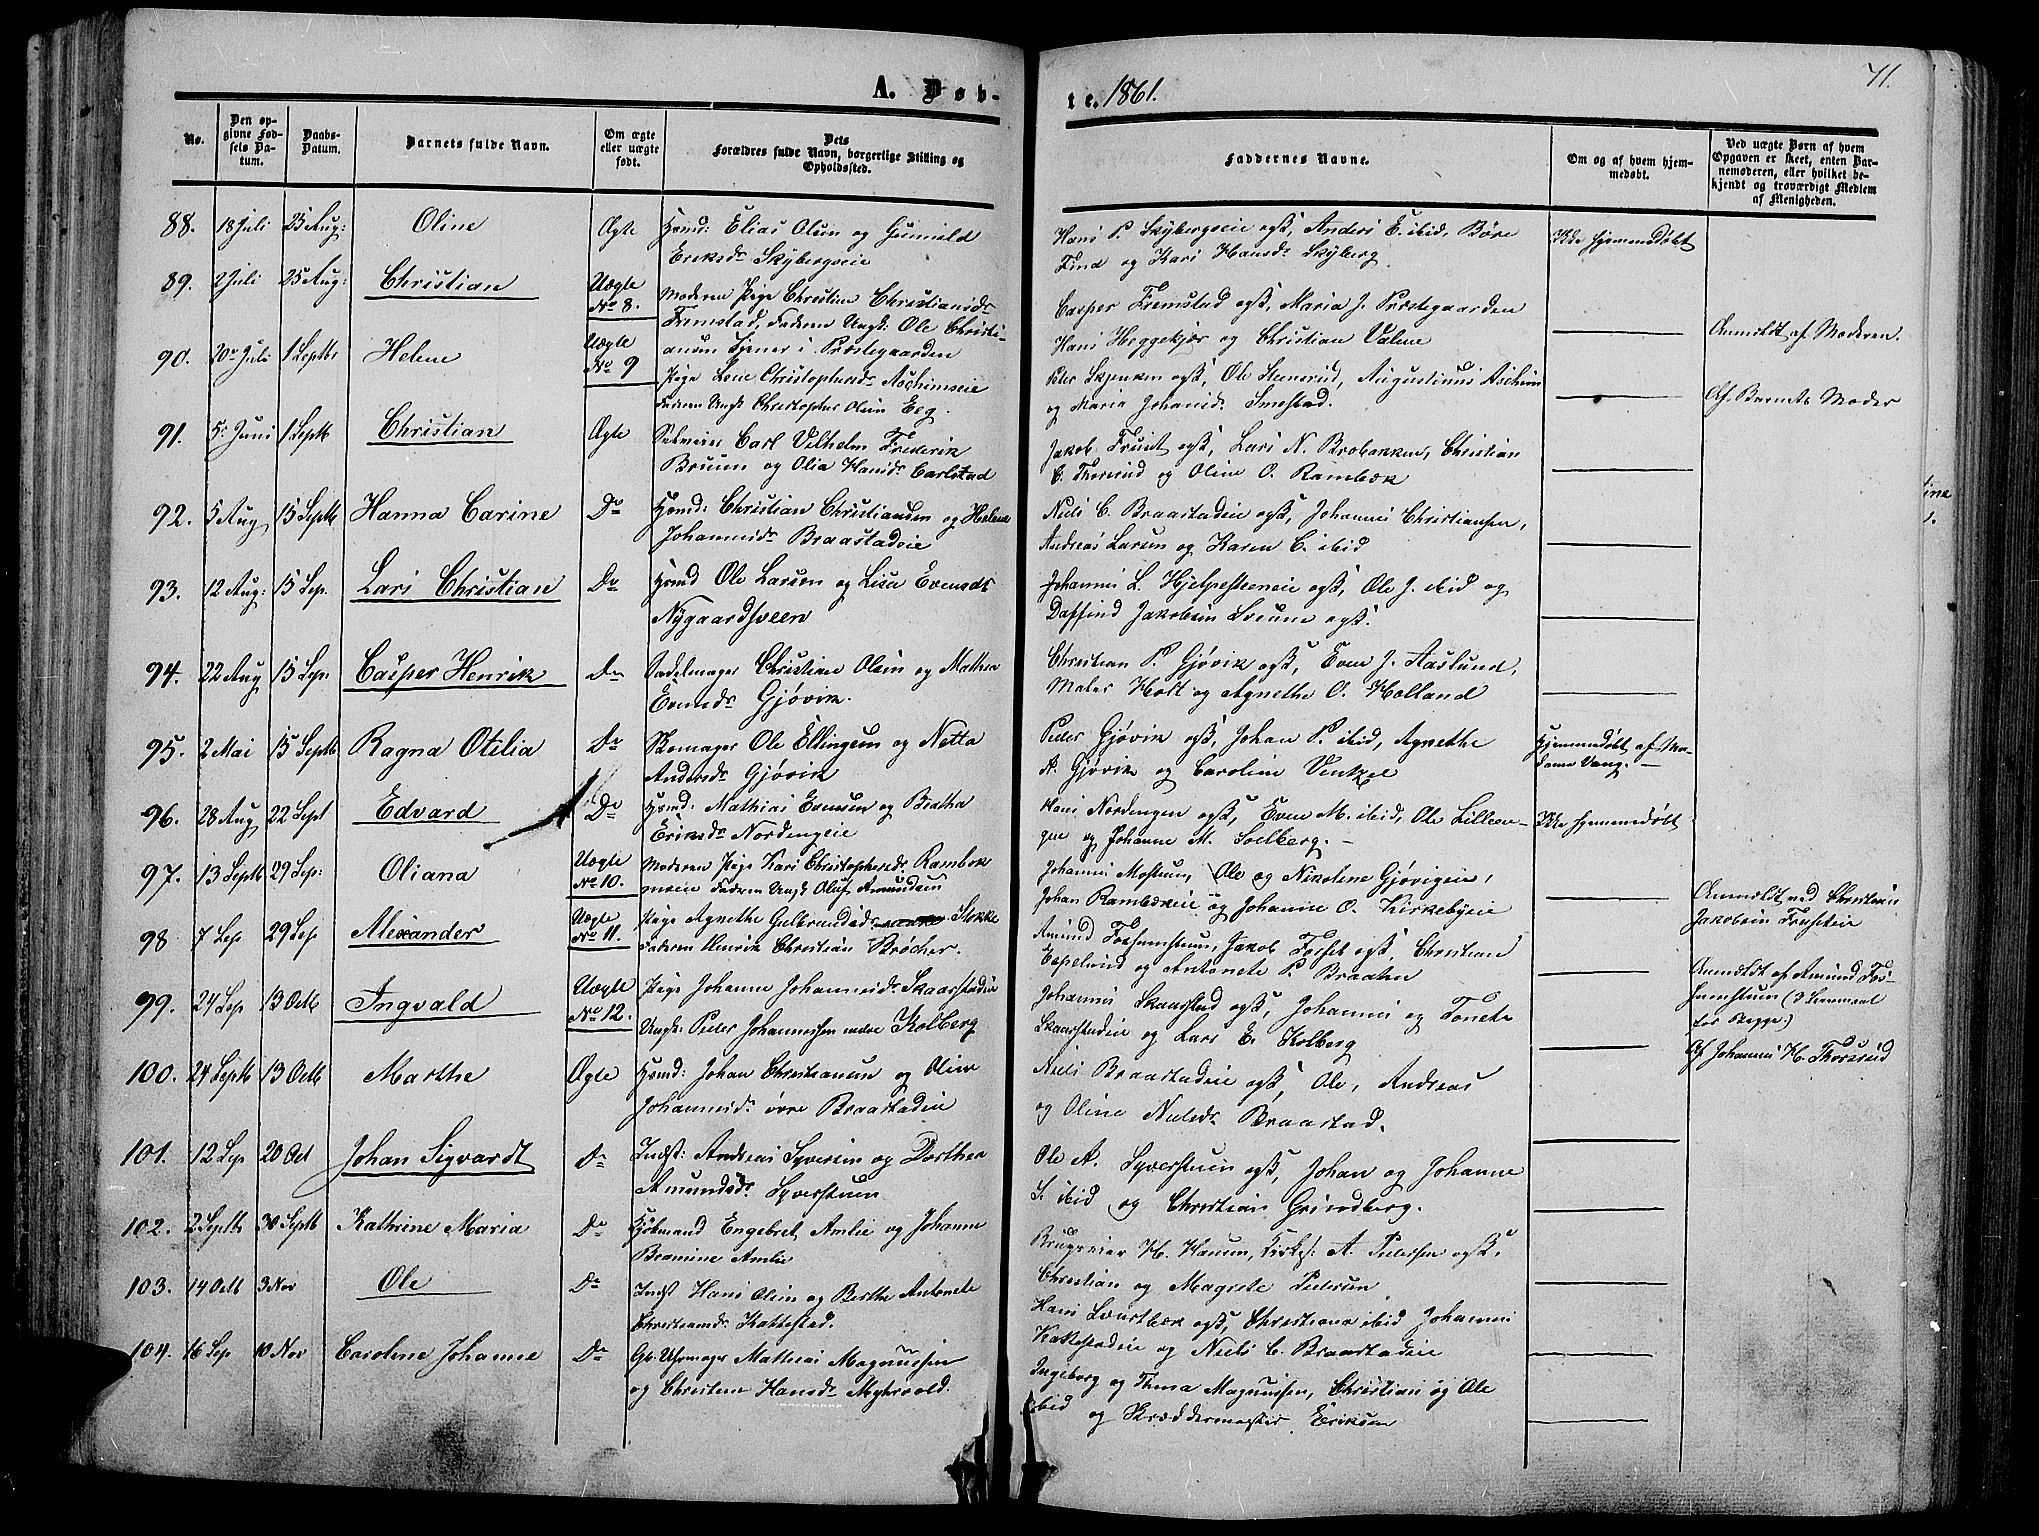 A. Døb-
te. 1861. 71.
No.
Den op-
givne Fød-
sels Da-
tum.
Daabs-
Datum.
Barnets fulde Navn.
Om ægte
eller uægte
født.
Dets
Forældres fulde Navn, borgerlige Stilling og
Opholdssted.
Faddernes Navne.
Om og af hvem hjem-
medøbt.
Ved uægte Børn af hvem
Opgaven er skeet, enten Bar-
nemoderen, eller hvilket be-
kjendt og troværdigt Medlem
af Menigheden.
88. 18 Juli 25 Aug: Oline Ægte Hsmd: Elias Olsen og Gunild
Eriksdr Skybergseie
Hans P. Skybergseie ogs, Anders E. ibid, Børe
Find og Kari Hansdr Skyberg. Ikke hjemmedøbt
89. 2 Juli 25 Aug: Christian Uægte
No 8.
Moderen Pige Christine Christiansdr
Fremstad, Faderen Ungk: Ole Christi-
ansen Tjener i Præstegaarden
Casper Fremstad ogs, Maria J. Præstegaarden
Hans Heggekjær og Christian Valene
Anmeldt af Moderen.
90. 20 Juli 1 Septbr Helene Uægte
No 9
Pige Lene Christophersdr Aschimseie
Faderen Ungk Christopher Olsen Eeg.
Peter Skjenken ogs, Ole Steensrud, Augustinus Aschim
og Maria Johansdr Smestad.
Af Barnets Moder
91. 5 Juni 1 Septb Christian Ægte Selveier Carl Vilhelm Frederik
Bruun og Olia Hansdr Carlstad
Jakob Fruset ogs, Lars N. Brobakken, Christian
C. Thorsrud og Oline O. Rambæk
92. 5 Aug 15 Septb Hanna Carine Do Hsmd: Christian Christiansen og Helene
Johannisdr Braastadeie
Niels C. Braastadeie ogs, Johannes Christiansen,
Andreas Larsen og Karen C. ibid
93. 12 Aug: 15 Sep. Lars Christian Do Hsmd Ole Larsen og Lise Evensdr
Nygaardsveen
Johannes L. Hjelpesteneie ogs, Ole J. ibid og
Daffind Jakobsen Sveum ogs.
94. 22 Aug 15 Sep Casper Henrik Do Sadelmager Christian Olsen og Mathea
Evensdr Gjøvik.
Christian P. Gjøvik ogs, Even J. Aaslund,
Maler Holt og Agnethe O. Holland
95. 2 Mai 15 Septb Ragna Otilia Do Skomager Ole Ellingsen og Netta
Andersdr Gjøvik
Peder Gjøvik ogs, Johan P. ibid, Agnethe
A. Gjøvik og Caroline Venkel
Hjemmedøbt af Ma-
dame Vang.
96. 28 Aug 22 Sept Edvard Do Hsmd: Mathias Evensen og Beatha
Eriksdr Nordengeie
Hans Nordengen ogs, Even M. ibid, Ole Lilleen-
gen og Johanne M. Soelberg.
Ikke hjemmedøbt
97. 13 Septb 29 Sep: Oliana Uægte
No 10.
Moderen Pige Kari Christophersdr Rambek-
moeie Faderen Ungk Oluf Amundsen
Johannes Mostuen, Ole og Nikoline Gjøvigeie,
Johan Rambækeie og Johanne O. Kirkebyeie
Anmeldt ved Christian
Jakobsen Fruseteie
98 7 Sep 29 Sep Alexander Uægte
No 11.
Pige Agnethe Gulbrandsdr Stokke
Faderen Henrik Christian Brøcher.
Amund Fossumstuen, Jakob Forset ogs, Christian
Espelund og Antonete P. Braaten
Anmeldt af Amund Fos-
sumstuen (3 Lemmeal
for Begge)
99. 24 Sep 13 Octb Ingvald Uægte
No 12.
Pige Johanne Johannisdr Skaarstadeie
Ungk: Peder Johannessen nedre Kolberg
Johannes Skaarstad ogs, Johannes og Tonete
Skaarstadeie og Lars E. Kolberg
Af Johannes H. Thorsrud
100. 24 Septb 13 Octb Marthe Ægte Hsmd: Johan Christiansen og Oline
Johannisdr øvre Braastadeie
Niels Braastadeie ogs, Ole, Andreas
og Oline Nielsdr Braastad.
101. 12 Sep 20 Oct Johan Sigvardt Do Indst: Andreas Syversen og Dorthea
Amundsdr Syverstuen
Ole A. Syverstuen ogs, Johan og Johanne
S. ibid og Christian Grindberg.
102. 2 Septb 30 Septb Kathrine Maria Do Kjøbmand Engebret Amlie og Johanne
Bramine Amlie
Brugseier H. Hansen, Kirks: A. Pedersen ogs,
Christian og Magrete Pedersen
103. 14 Octb 3 Nov Ole Do Indst Hans Olsen og Berthe Antonete
Christiansdr Kattestad.
Hans Svartbæk ogs, Christiana ibid Johannes
Kattestadeie og Niels C. Braastadeie
104. 16 Sep 10 Nov Caroline Johanne Do Gb. Uhrmager Mathias Magnussen
og Christine Hansdr Myhrvold.
Ingeborg og Thma Magnussen, Christian og Ole
ibid og Skræddermester Eriksen